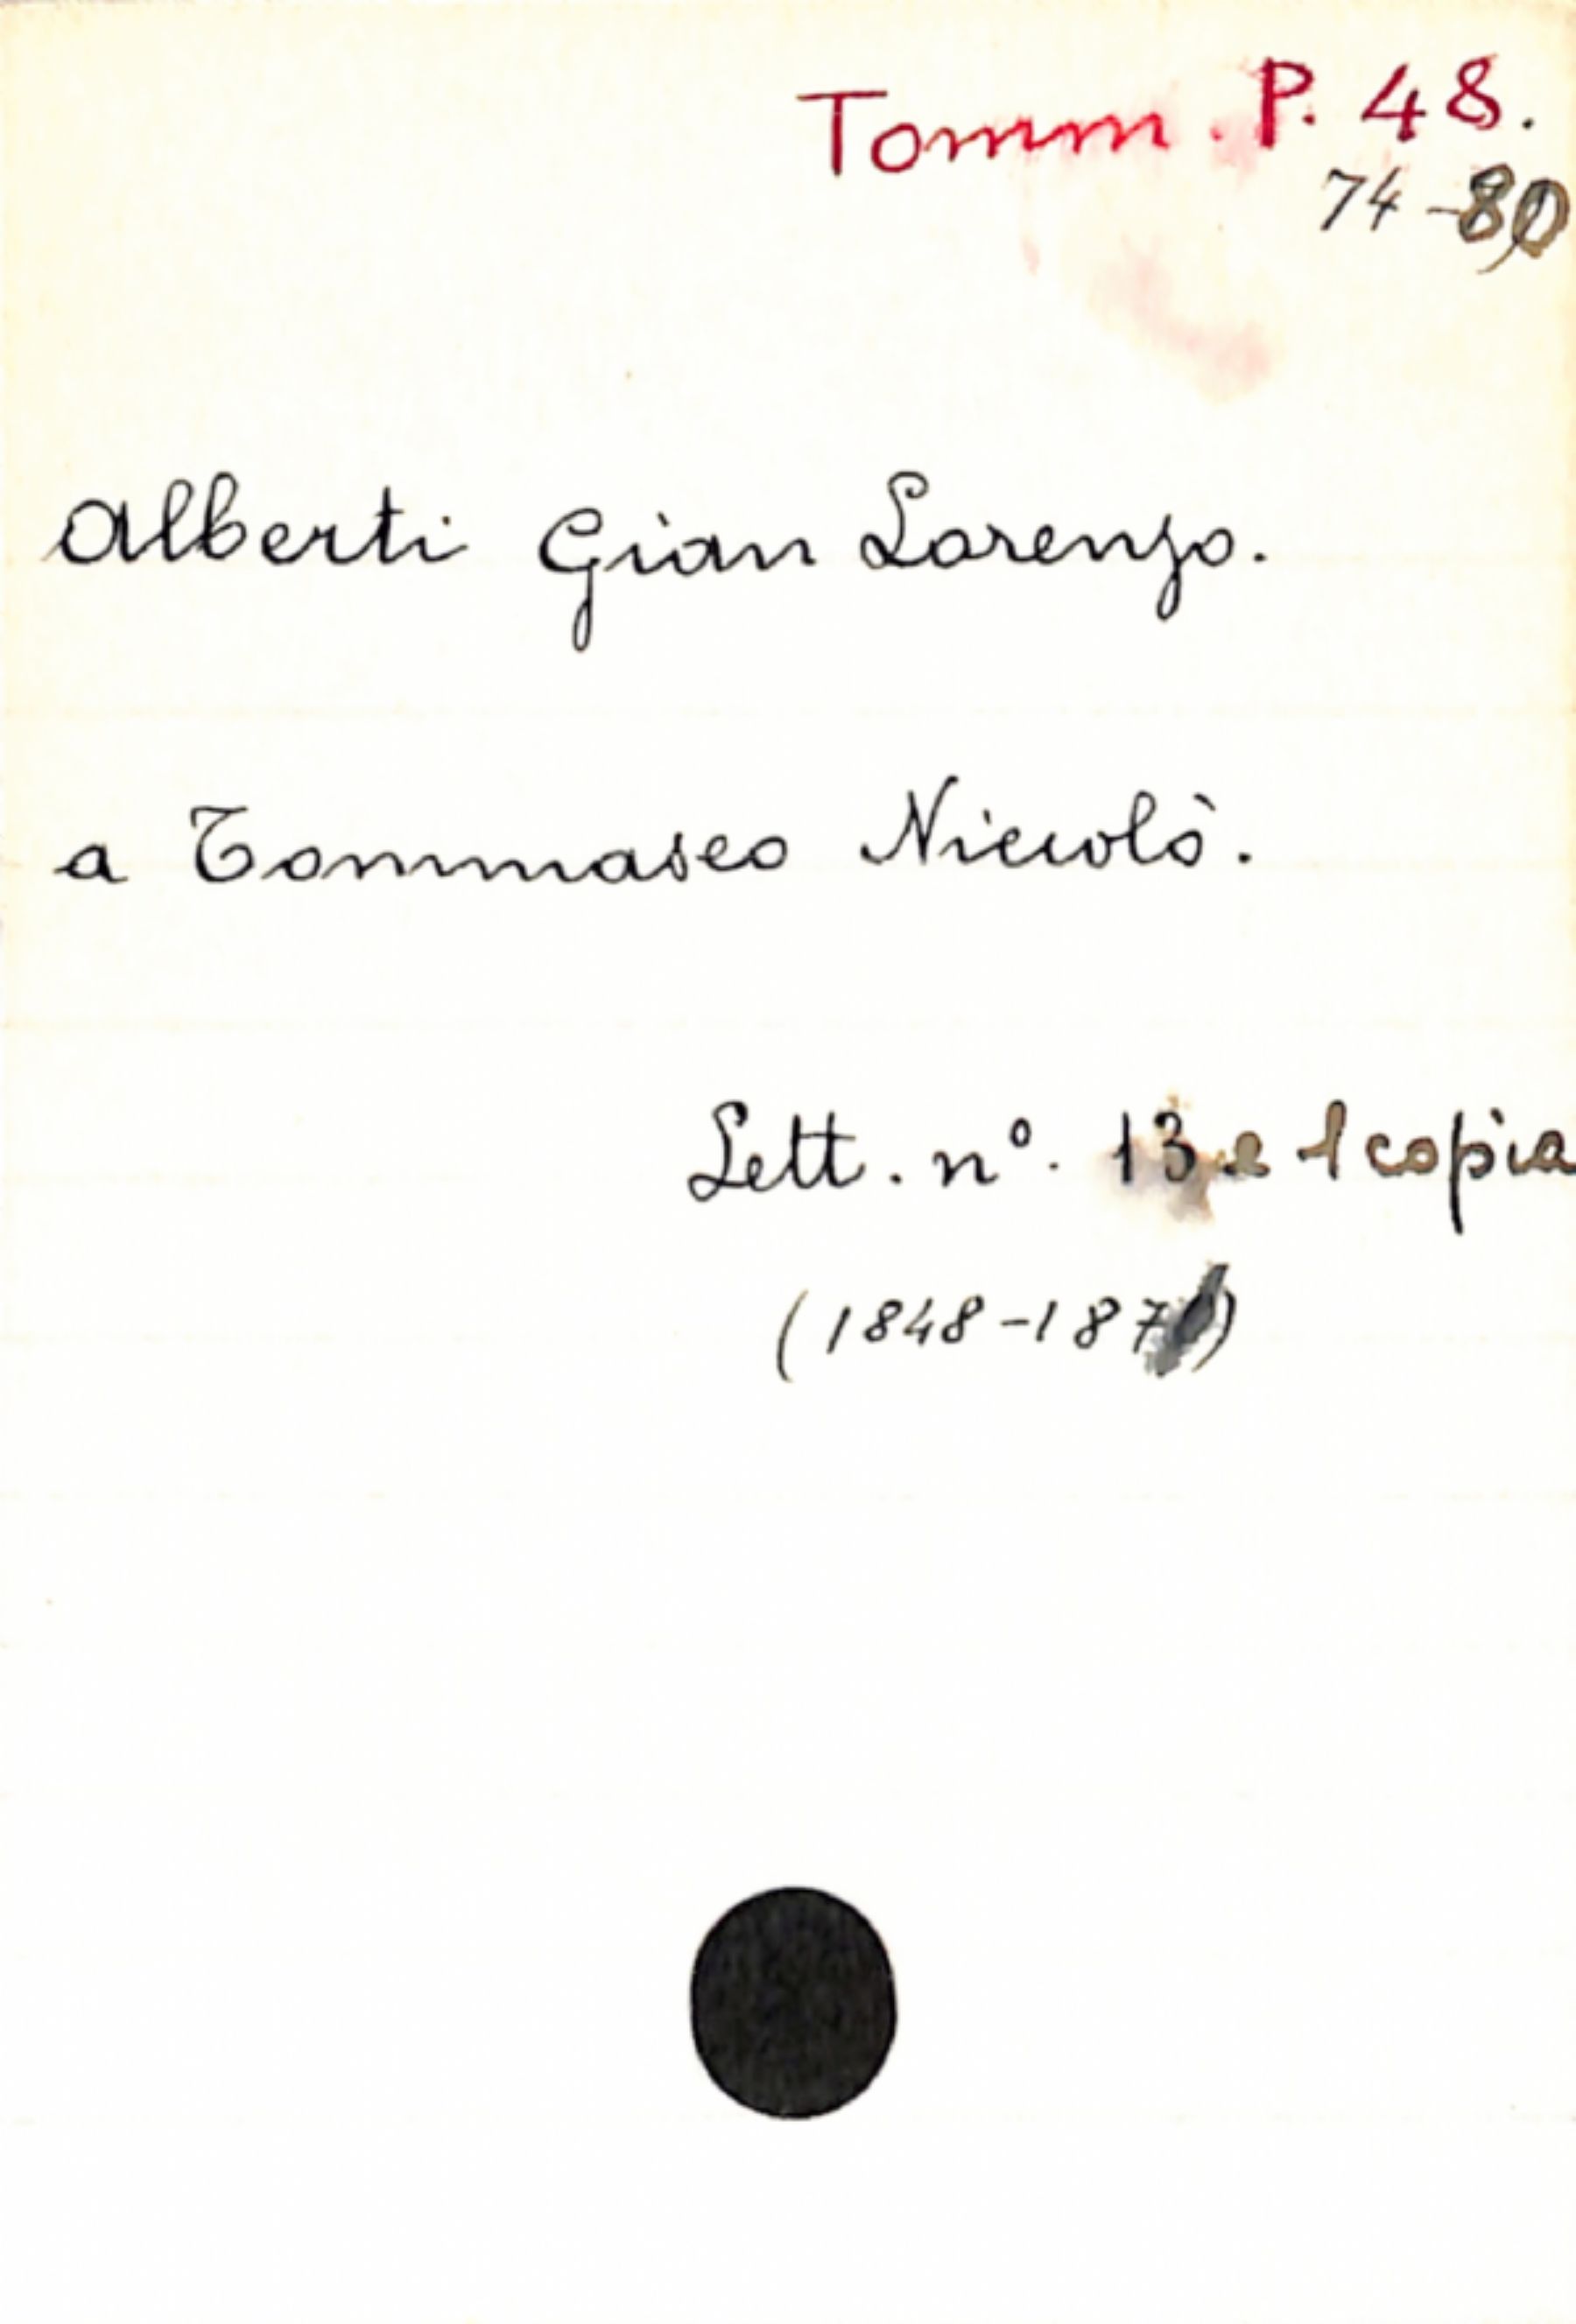 Tomm. P. 48.
74-80
Alberti Gian Lorenzo.
a Tommaseo Niccolò.
Lett. n°. 13 e 1 copia